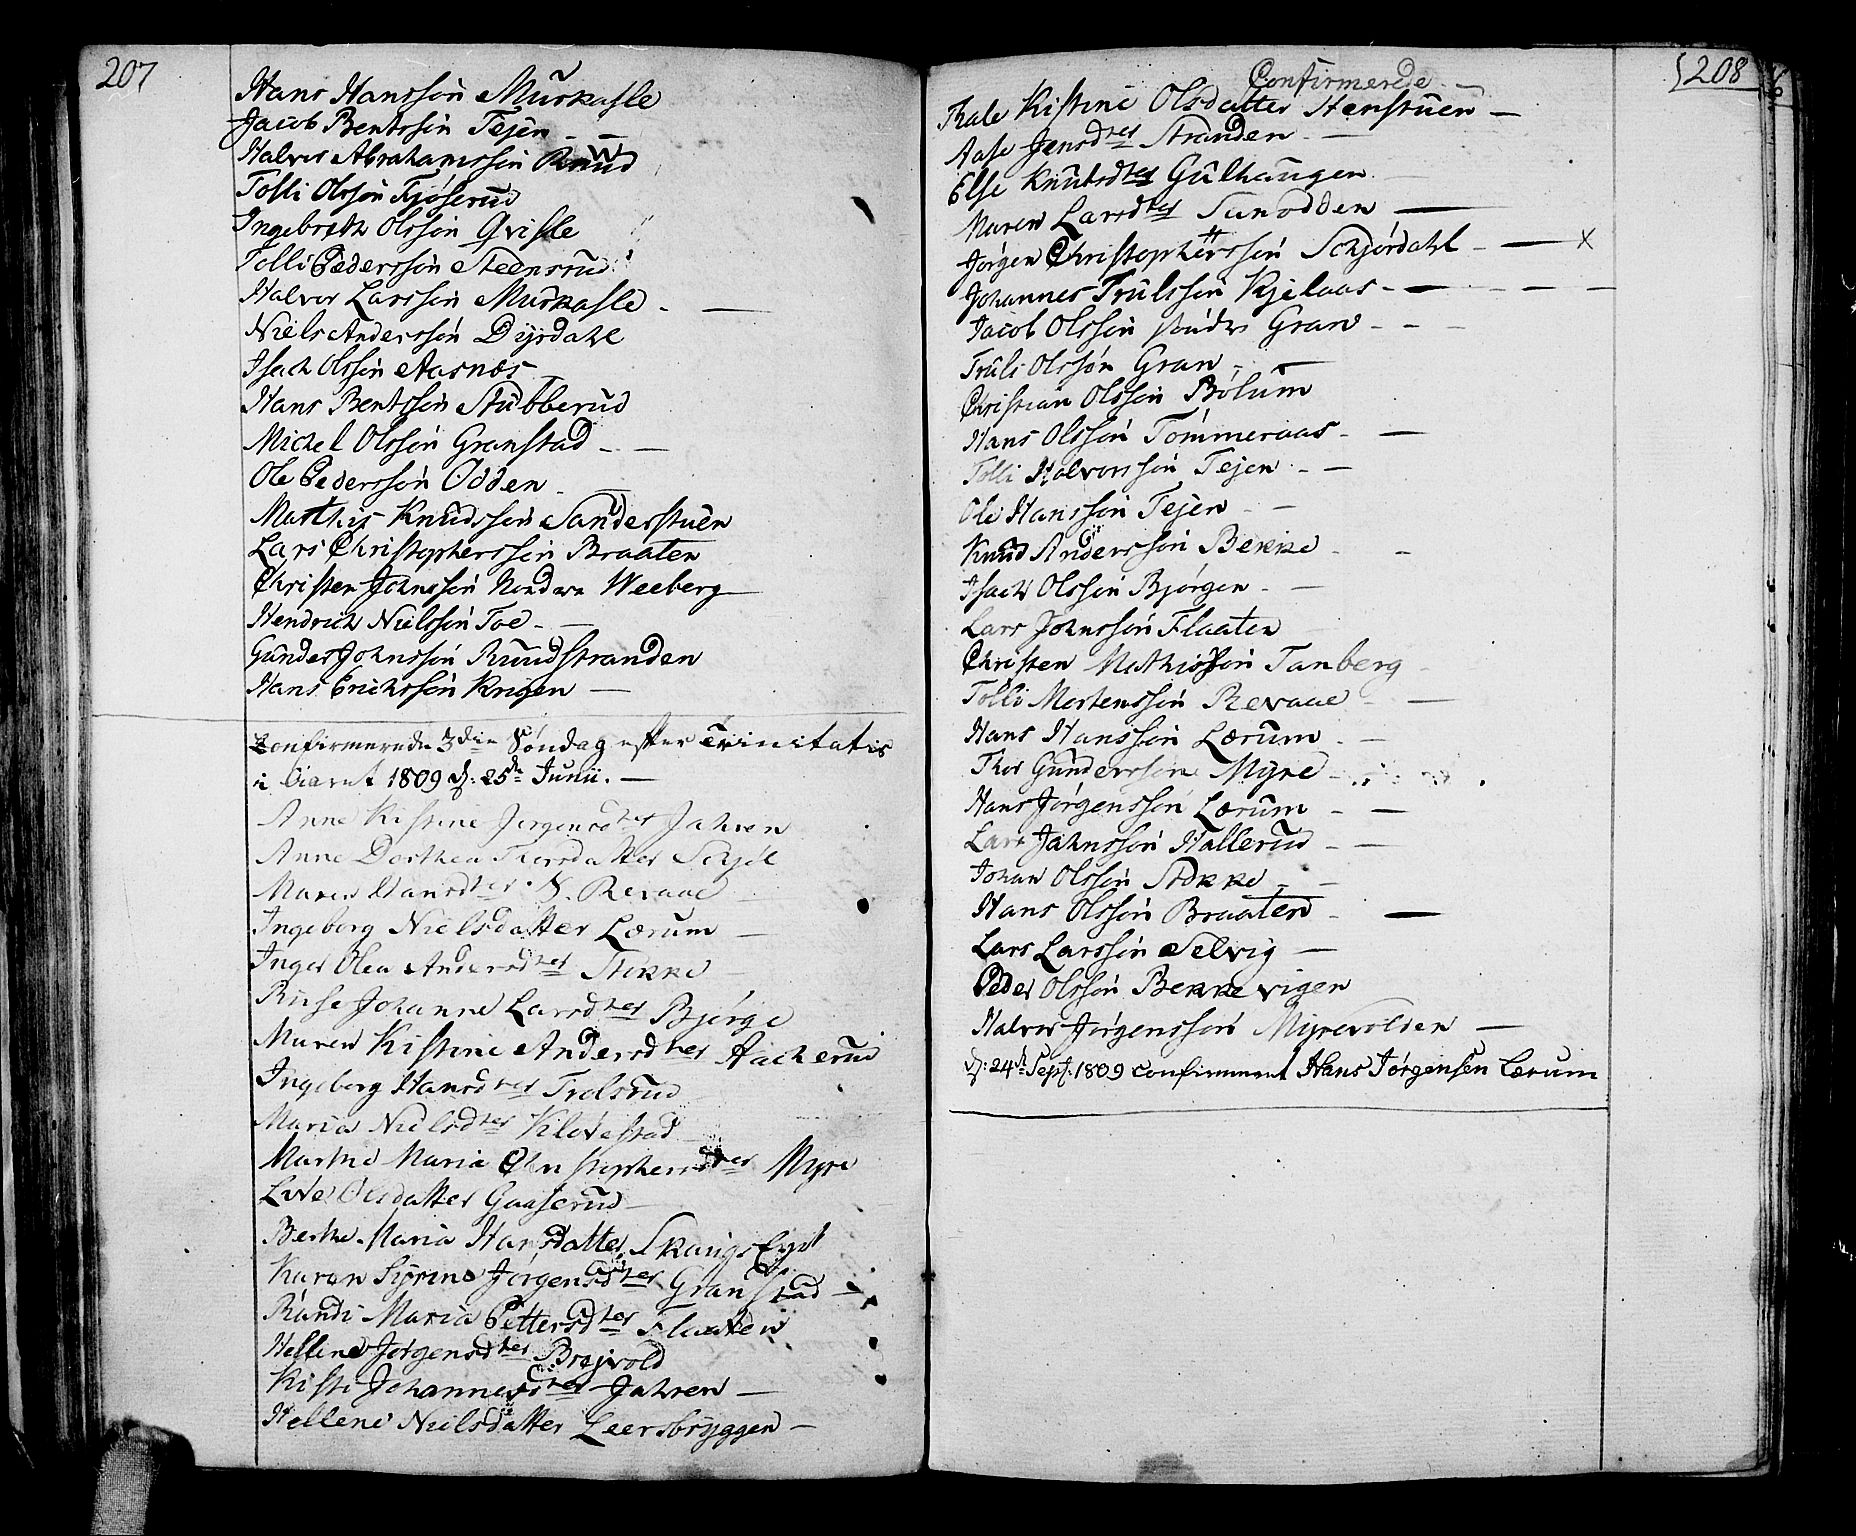 207
Hans Hanssøn Muskasle
Jacob Bentssøn Tejen
Halvor Abrahamssøn Ruud
Tolli Olssøn Fjøserud
Ingebreth Olssøn Qvisle
Tolli Pederssøn Steensrud
Halvor Larssøn Muskasle
Niels Anderssøn Dyrdahl
Isach Olssøn Aasnæs
Hans Bentssøn Stubberud
Michel Olssøn Granstad
Ole Pederssøn Odden
Mathis Knudssøn Sanderstuen
Lars Christopherssøn Braaten
Christen Johnssøn Nordre Weeberg
Hendrich Nielssøn Toe
Gunder Johnssøn Ruudstranden
Hans Erichssøn Krigen
Confirmerede 3die Søndag efter Trinitatis
i 1809 d: 25de Junii.
Anne Kistine Jørgensdter Jahren
Anne Dorthea Thorsdatter Schjøl
Maren Hansdter N. Revaae
Ingeborg Nielsdatter Lærum
Inger Olea Andersdter Stokke
Johanne Larsdter Bjørge
Maren Kistine Andersdter Aacherud
Ingeborg Hansdter Trolsrud
Maria Nielsdter Kløvestad
Marthe Maria Christophersdter Myre
Olsdatter Gaaserud
Berthe Maria Hansdatter
Karen Syrine Jørgensdter Granstad
Randi Maria Pettersdter Flaaten
Hellene Jørgensdter Brejvold
Kisti Johannesdter Jahren
Hellene Nielsdatter Leersbryggen
Confirmerede
208
Thale Kistine Olsdatter Henstuen
Aase Jensdter Stranden
Else Knudsdter Gulhaugen
Maren Larsdter Tunodden
Jørgen Christopherssøn Schjørdahl x
Johannes Trulssøn Kjelaas
Jacob Olssøn søndre Gran
Truls Olssøn Gran
Christian Olssøn Bølum
Hans Olssøn Tømmeraas
Tolli Halvorssøn Tejen
Ole Hanssøn Tejen
Knud Anderssøn Bekke
Isach Olssøn Bjørgen
Lars Johnssøn Flaaten
Christen Mathissøn Tanberg
Tolli Mortenssøn Revaae
Hans Hanssøn Lærum
Thor Gunderssøn Myre
Hans Jørgenssøn Lærum
Lars Jahnssøn Hallerud
Johan Olssøn Stokke
Hans Olssøn Braaten
Lars Larssøn Selvig
Peder Olssøn Bekkevigen
Halvor Jørgenssøn Myrevolden
d: 24de Sept. 1809 confirmeret Hans Jørgensen Lærum